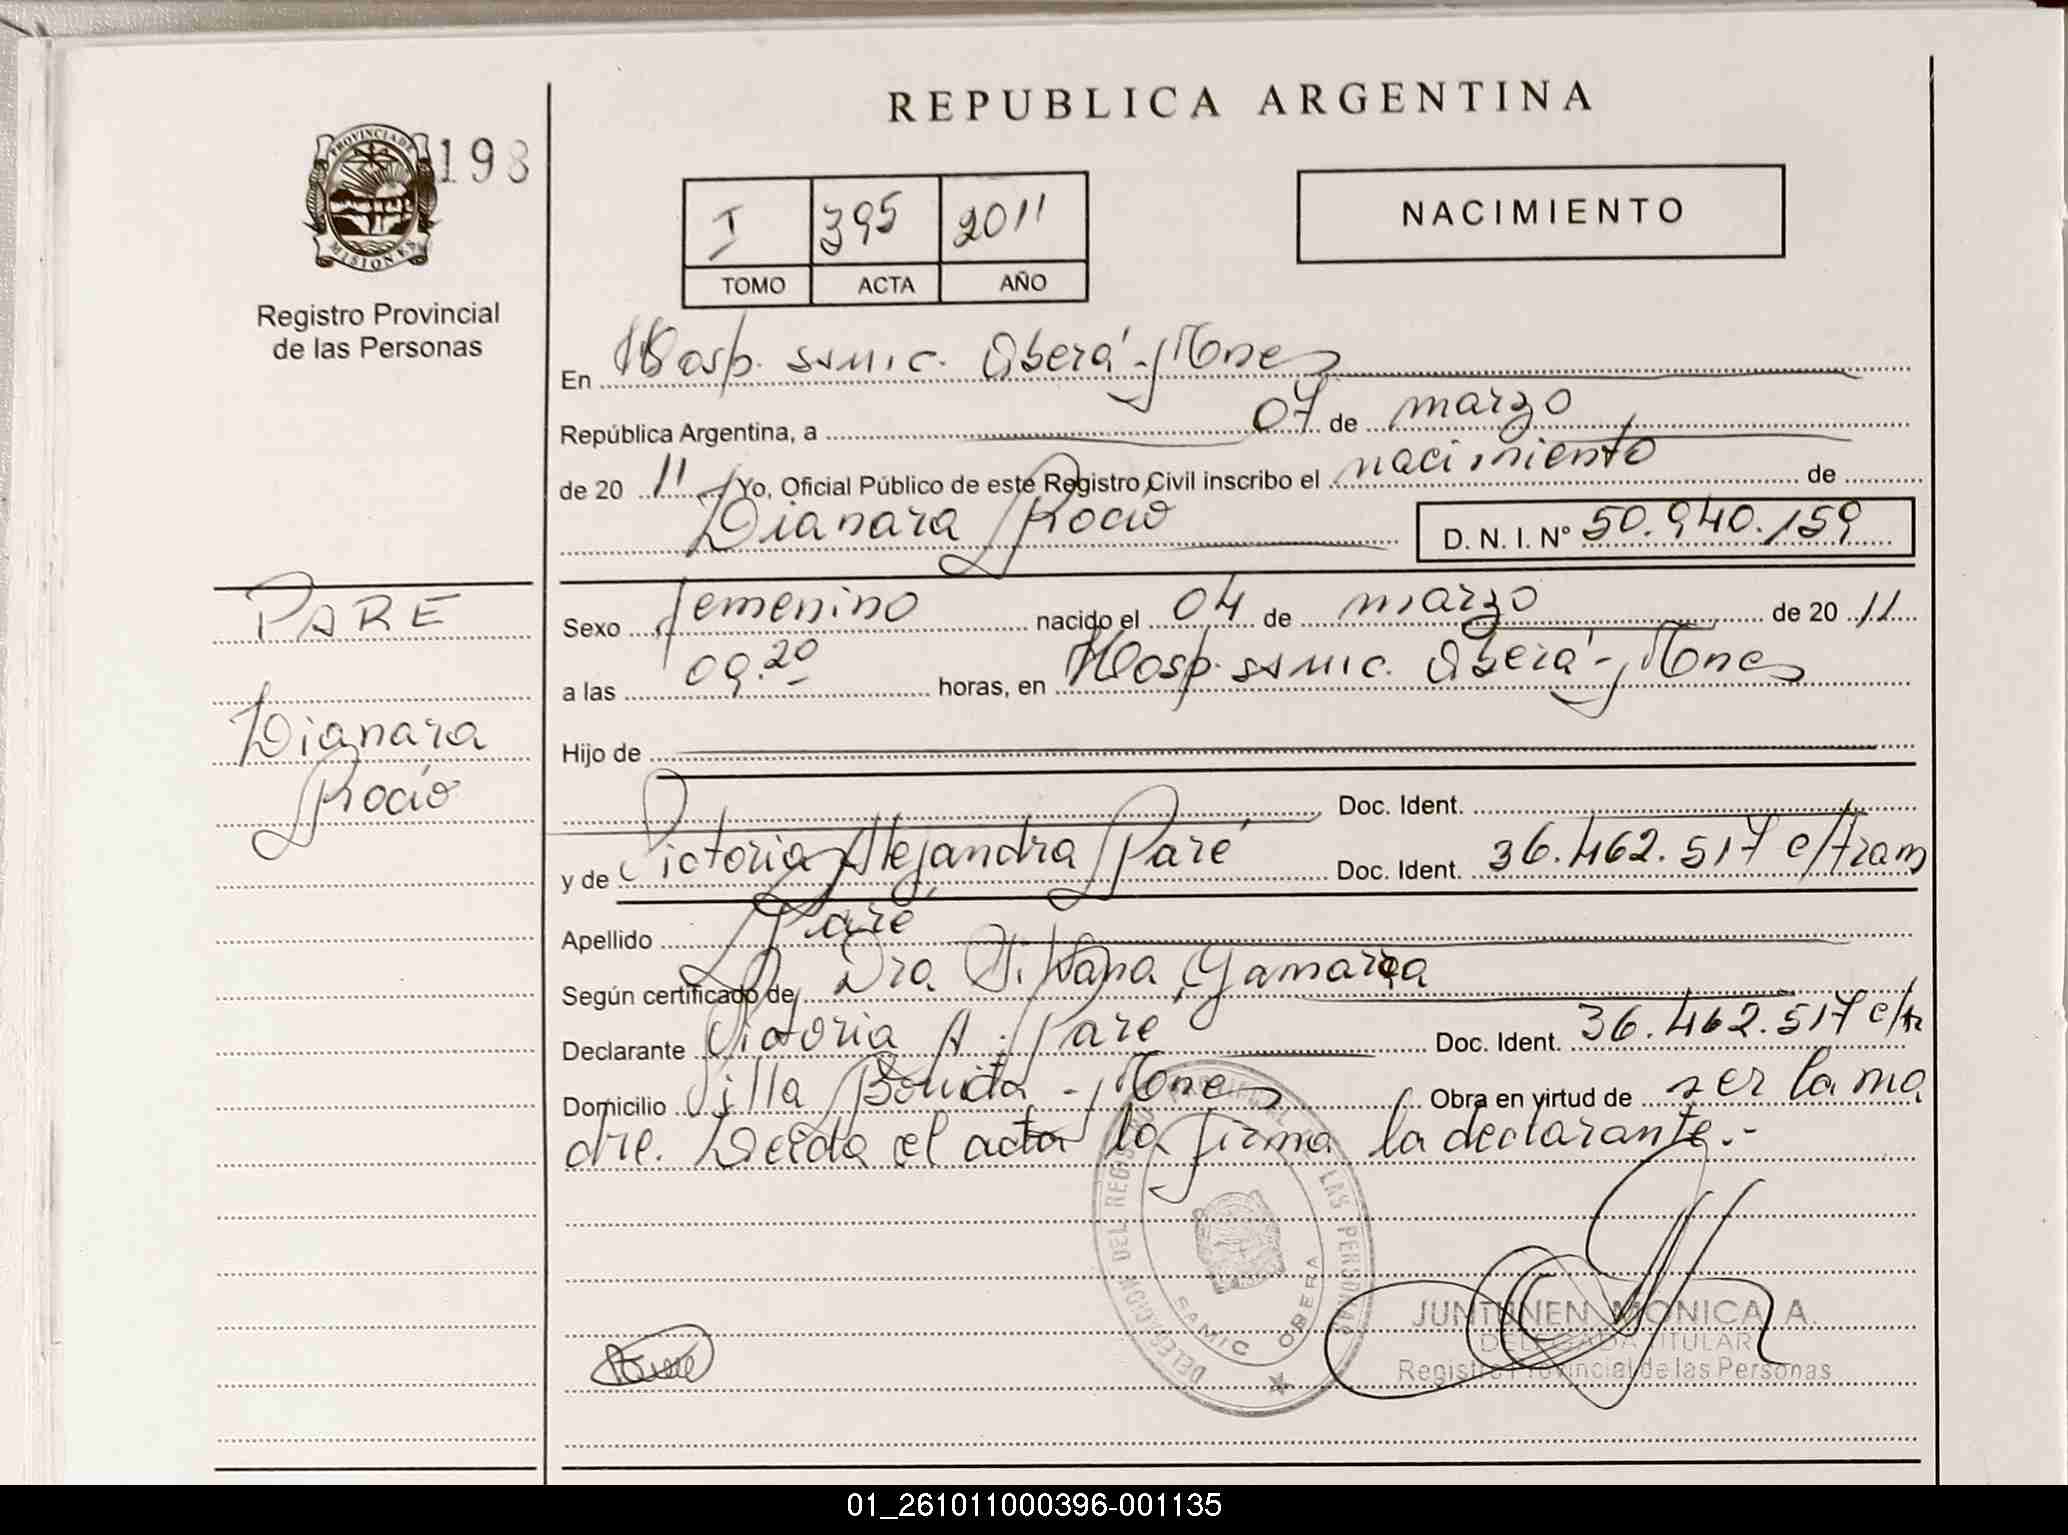 REPUBLICA ARGENTINA
PROVINCIA DE MISIONES
198
Registro Provincial
de las Personas
I 395 2011
TOMO ACTA AÑO
NACIMIENTO
En Hosp. SAMIC. Oberá - Mnes
República Argentina, a 07 de marzo
de 20 11 Yo, Oficial Público de este Registro Civil inscribo el nacimiento de
Dianara Rocío D. N. I. Nº 50.940.159
PARE
Dianara
Rocío
Sexo femenino nacido el 04 de marzo de 20 11
a las 09.20 horas, en Hosp. SAMIC. Oberá - Mnes
Hijo de
Doc. Ident.
y de Victoria Alejandra Paré Doc. Ident. 36.462.517 c/tram
Apellido Paré
Según certificado de Dra Gamarra
Declarante Victoria A. Paré Doc. Ident. 36.462.517 c/tr
Domicilio Villa Bonita - Mnes Obra en virtud de ser la ma
dre. Leída el acta la firma la declarante.-
DELEGACION DEL REGISTRO PROVINCIAL DE LAS PERSONAS
SAMIC OBERA
JUNTUNEN MONICA A.
DELEGADA TITULAR
Registro Provincial de las Personas
01_261011000396-001135